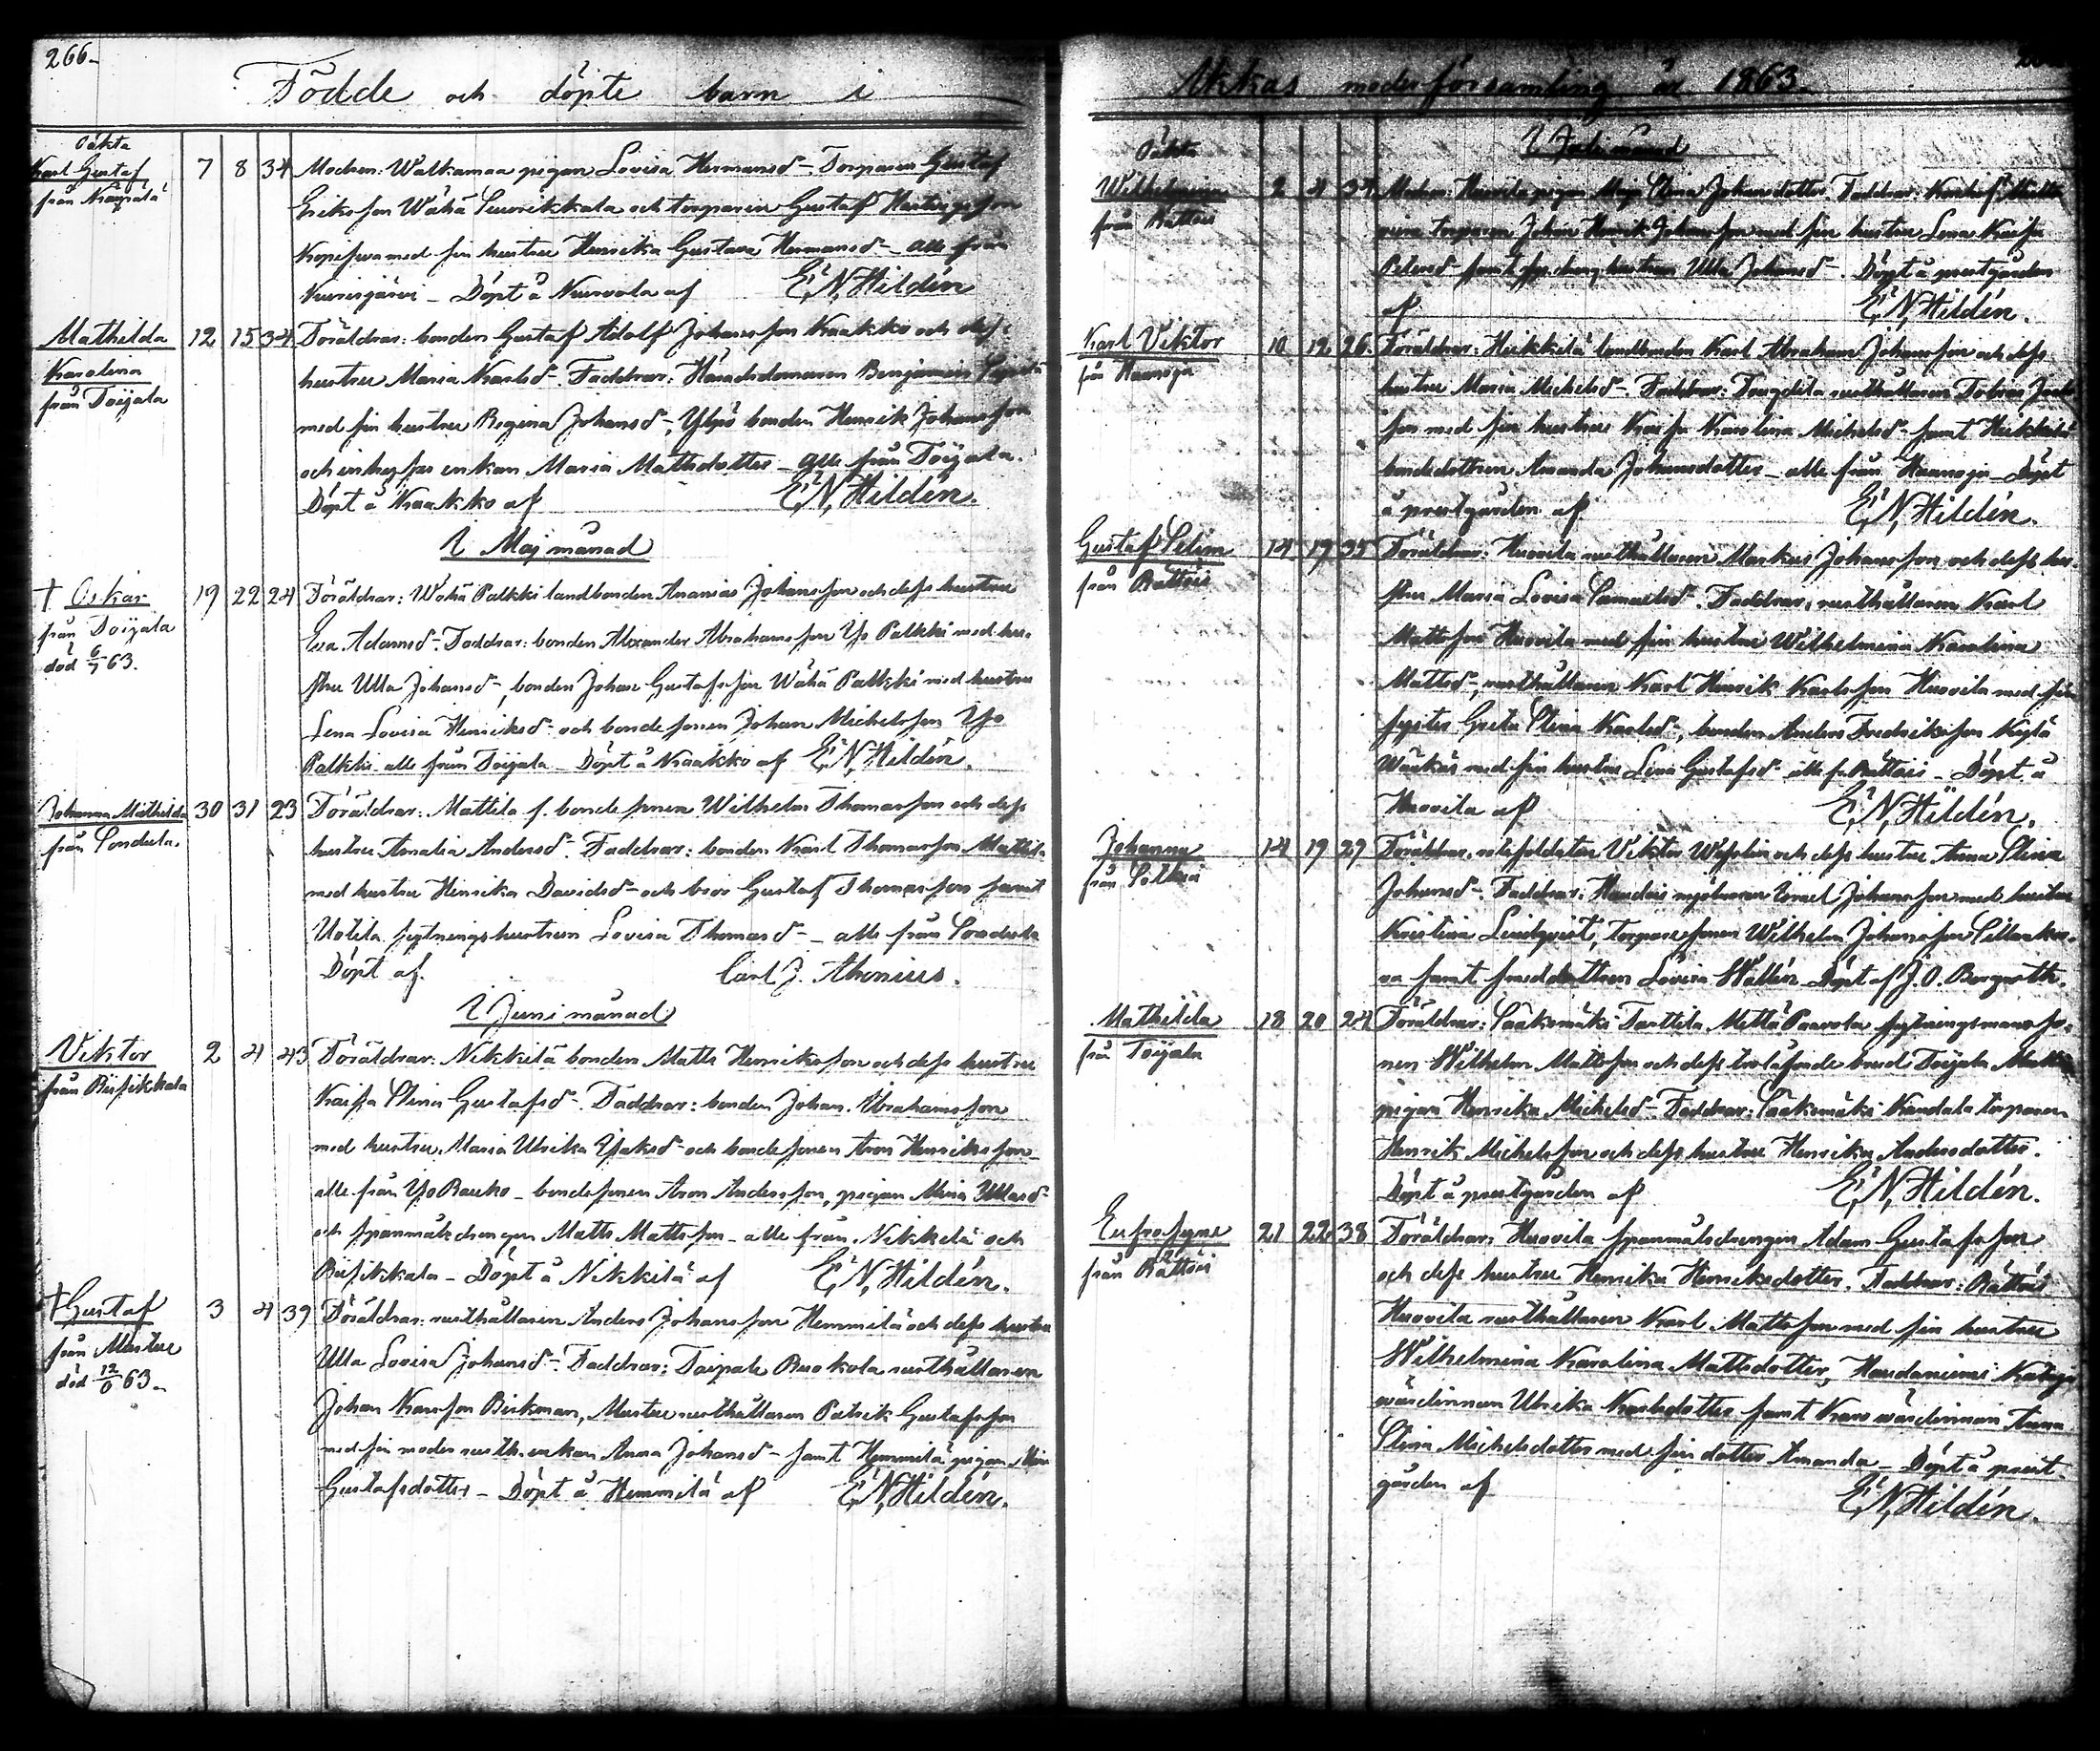 266.
Födde och döpte barn i
Oäkta
Karl Gustaf 7 8 34 Modren: Walkamaa pigan Lovisa Hermansd:r Torparen Gustaf
från
Eriksson Wähä och torparen Gustaf
med sin hustru Henrika Gustava Hermansd:r alle från
Döpt å af E. N. Hildén
Mathilda 12 15 34 Föräldrar: bonden Gustaf Adolf Johansson Kraakko och dess
Karolina hustru Maria Karlsd:r Faddrar: Häradsdomaren Benjamin
från Toijala
med sin hustru Regina Johansd:r, Ylpö bonden Henrik Johansson
och enkan Maria Mattsdotter alle från Toijala.
Döpt å Kraakko af E. N. Hildén.
I Maj månad
† Oskar 19 22 24 Föräldrar: Wähä Palkki landbonden Ananias Johansson och dess hustru
från Toijala
död 6/7 63. Eva Adamsd:r Faddrar: bonden Alexander Abrahamsson Yso Palkki med hu-
stru Ulla Johansd:r, bonden Johan Gustafsson Wähä Palkki med hustru
Lena Lovisa Henriksd:r och bondesonen Johan Michelsson Yso
Palkki alle från Toijala Döpt å Kraakko af E. N. Hildén.
Johanna Mathilda 30 31 23 Föräldrar: Mattila f. bondesonen Wilhelm Thomasson och dess
från Sondula. hustru Amalia Andersd:r Faddrar: bonden Karl Thomasson
med hustru Henrika Davidsd:r och bror Gustaf Thomasson samt
Uotila sytningshustrun Lovisa Thomasd:r alle från
Döpt af Carl J. Ahonius.
I Juni månad
Viktor 2 4 43 Föräldrar: Nikkilä bonden Matts Henriksson och dess hustru
från Riisikkala
Kaisa Stina Gustafsd:r Faddrar: bonden Johan Abrahamsson
med hustru Maria Ulrika Isaksd:r och bondesonen Aron Henriksson
alle från Yso Rauko bondesonen Aron Andersson, pigan Mina
och spanmålsdrengen Matts Mattsson alle från Nikkilä och
Riisikkala Döpt å Nikkilä af E. N. Hildén.
† Gustaf 3 4 39 Föräldrar: rusthållaren Anders Johansson Hemmilä och dess hustru
från Mustue
död 12/6 63. Ulla Lovisa Johansd:r Faddrar: Taipale Ruokola rusthållaren
Johan Karlsson Birkman, Mustue rusthållaren Patrik Gustafsson
med sin moder rusth. enkan Anna Johansd:r samt Hemmilä pigan
Gustafsdotter Döpt å Hemmilä af E. N. Hildén.
Akkas moderförsamling år 1863.
I Juli månad
Oäkta
Wilhelmina 2 4 Modren: Huovila pigan Maja Stina Johansdotter. Faddrar:
från Rättöis torparen Johan Henrik Johansson med sin hustru Lena Kaisa
Petersd:r samt hustrun Ulla Johansd:r Döpt å prestgården
af E. N. Hildén.
Karl Viktor 10 12 26 Föräldrar: Heikkilä landbonden Karl Abraham Johansson och dess
från
hustru Maria Michelsd:r Faddrar: rusthållaren Tobias
son med sin hustru Kaisa Karolina Michelsd:r samt Heikkilä
bondedottren Amanda Johansdotter alle från Döpt
å prestgården af E. N. Hildén.
Gustaf Selim 14 19 35 Föräldrar: Huovila rusthållaren Markus Johansson och dess hu-
från Rättöis stru Maria Lovisa Samuelsd:r Faddrar: rusthållaren Karl
Mattsson Huovila med sin hustru Wilhelmina Karolina
Mattsd:r, rusthållaren Karl Henrik Karlsson Huovila med sin
syster Greta Stina Karlsd:r, bonden Anders Fredriksson
med sin hustru Lena Gustafsd:r alle fr. Rättöis Döpt å
Huovila af E. N. Hildén.
Johanna 14 19 29 Föräldrar: Viktor och dess hustru Anna Stina
från
Johansd:r Faddrar: mjölnaren Israel Johansson med hustru
Kristina Lindqvist, torparesonen Wilhelm Johansson
samt smeddottren Lovisa Wallén Döpt af J. O. Bergroth.
Mathilda 18 20 24 Föräldrar: Sääksmäki Tarttila Mattä Paavola sytningsmansso-
från Toijala nen Wilhelm Mattsson och dess trolåfvade brud Toijala
pigan Henrika Michelsd:r Faddrar: Sääksmäki torparen
Henrik Michelsson och dess hustru Henrika Andersdotter.
Döpt å prestgården af E. N. Hildén.
Eufrosyne 21 22 38 Föräldrar: Huovila spanmålsdrengen Adam Gustafsson
från Rättöis
och dess hustru Henrika Henriksdotter. Faddrar: Rättöis
Huovila rusthållaren Karl Mattsson med sin hustru
Wilhelmina Karolina Mattsdotter,
wärdinnan Ulrika Karlsdotter samt wärdinnan Anna
Stina Michelsdotter med sin dotter Amanda Döpt å prest-
gården af E. N. Hildén.